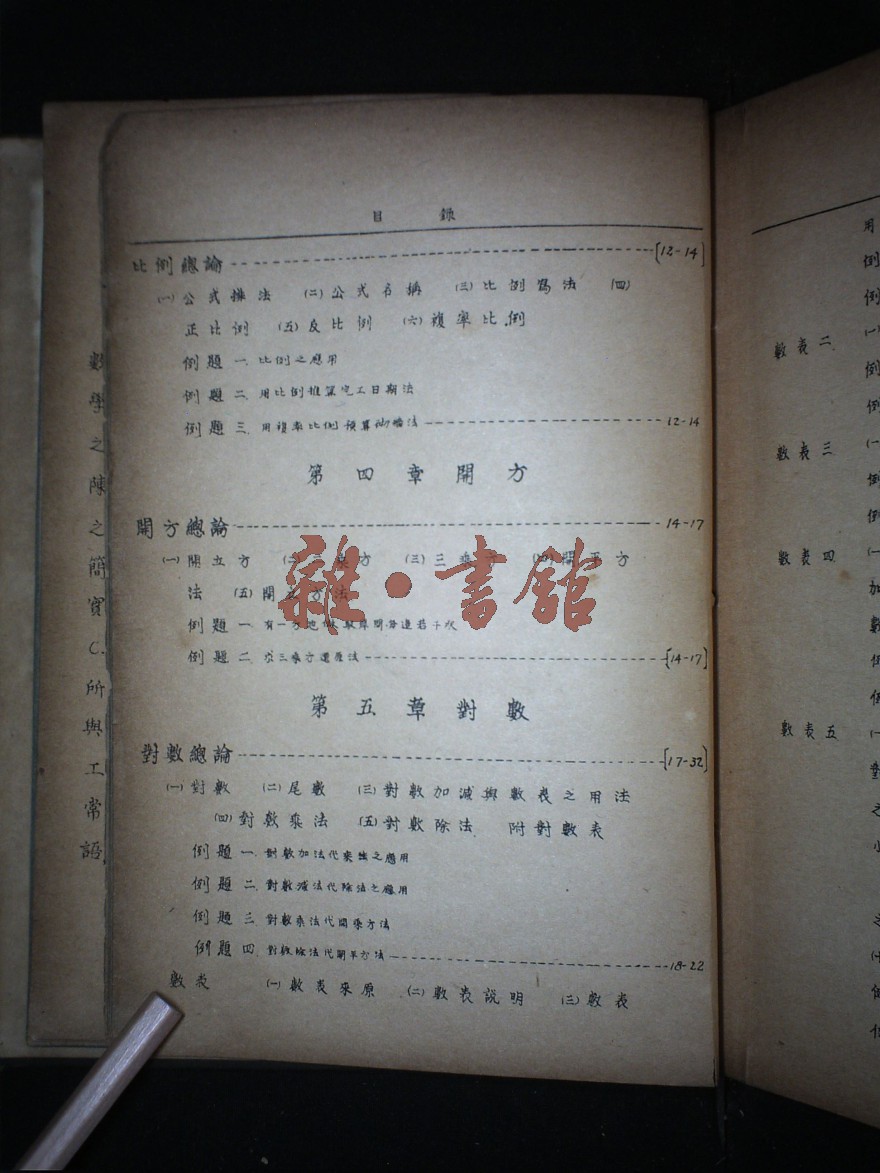 目錄
比例總論 [12-14]
㈠公式推法 ㈡公式名稱 ㈢比例寫法 ㈣
正比例 ㈤反比例 ㈥複率比例
例題一. 比例之應用
例題二. 用比例推算完工日期法
例題三. 用複率比例預算 12-14
第四章開方
開方總論 14-17
㈠開立方 ㈢三乘 開平方
法 ㈤開立方法
例題一. 有一方地 每邊若干次
例題二. 求三乘方還原法 [14-17]
第五章對數
對數總論 [17-32]
㈠對數 ㈡尾數 ㈢對數加減與數表之用法
㈣對數乘法 ㈤對數除法. 附對數表
例題一. 對數加法代乘法之應用
例題二. 對數減法代除法之應用
例題三. 對數乘法代開乘方法
例題四. 對數除法代開平方法 18-22
數表 ㈠數表來原 ㈡數表說明 ㈢數表
雜·書館
數學之陳之簡實C.所與工常語
用
例
例
數表二.
例
例
數表三
例
例
數表四
加
數
例
數表五
對
之